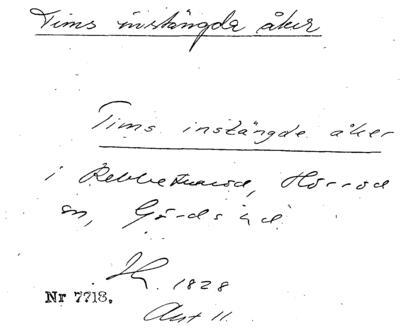 Tims instängda åker
Tims instängde åker
i Rebbetuaröd, Hörröd
sn, Gärds hd
1828
Nr 7718.
Akt 11.